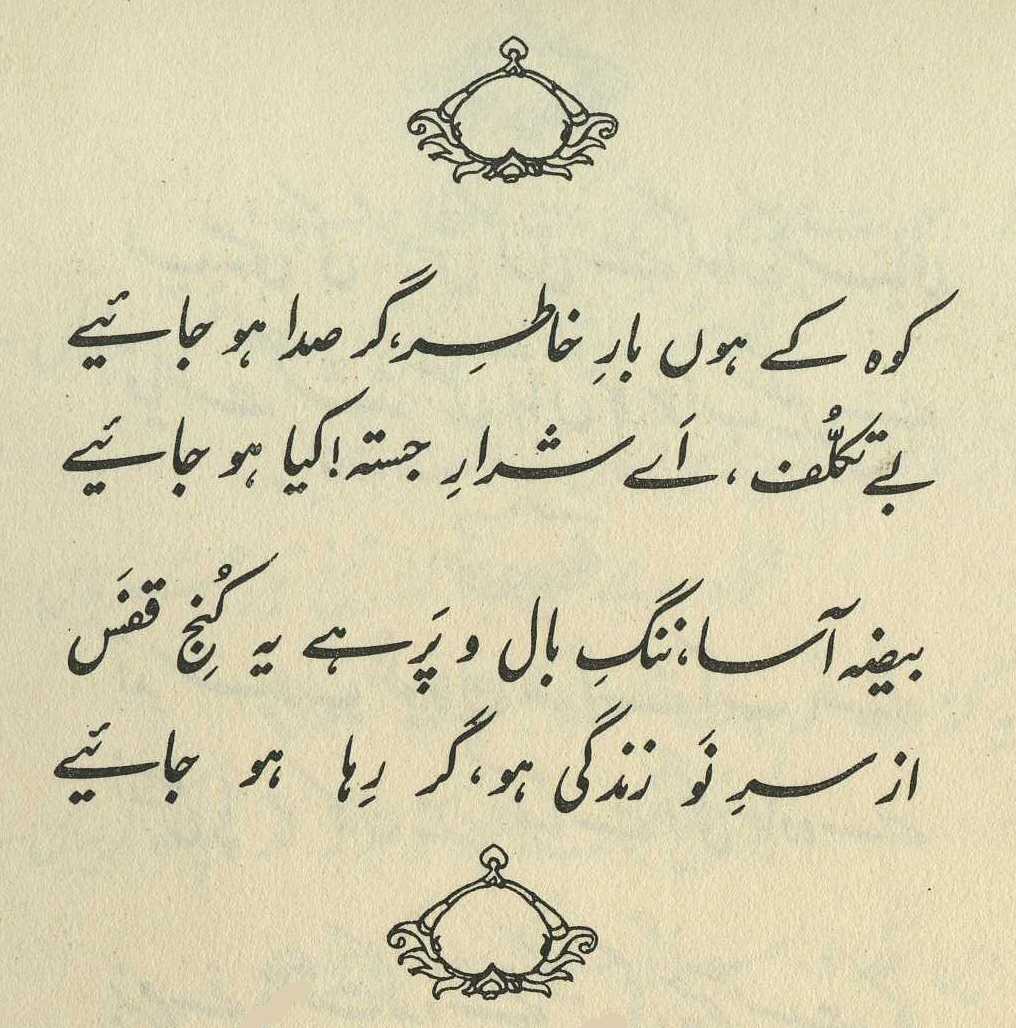 کوہ کے ہوں بارِ خاطِر، گر صدا ہو جائیے
بے تکلُّف، اَے شرارِ جستہ! کیا ہو جائیے
بیضہ آسا، ننگِ بال و پَر ہے یہ کُنجِ قفَس
از سرِ نَو زندگی ہو، گر رِہا ہو جائیے